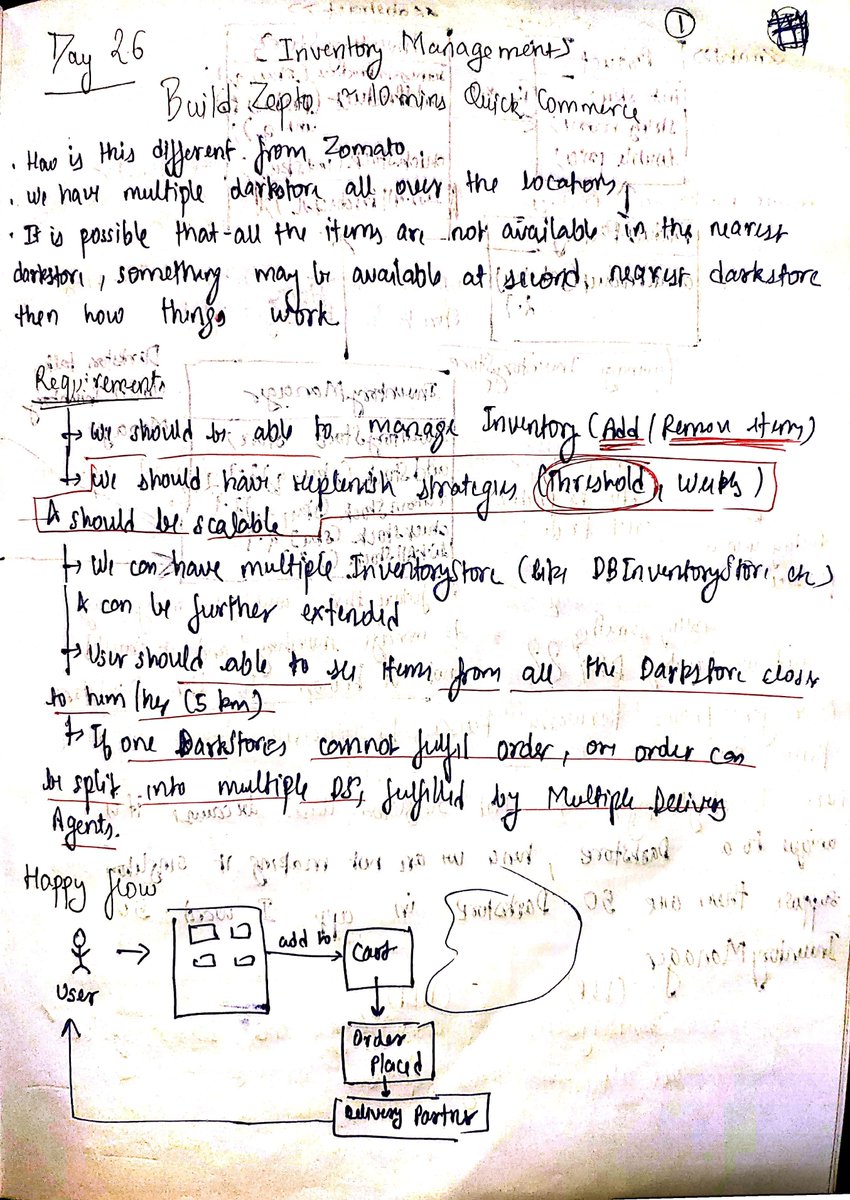 ①
Day 26 [Inventory Management]
Build Zepto ~ 10 mins Quick Commerce
. How is this different from Zomato
. we have multiple darkstore all over the locations
. It is possible that all the items are not available in the nearest
darkstore, something may be available at second nearest darkstore
then how things work
Requirements
→ We should be able to manage Inventory (Add / Remove items)
→ We should have replenish strategies (Threshold, weekly)
& should be scalable
→ We can have multiple InventoryStore (like DBInventoryStore etc)
& can be further extended
→ User should able to see items from all the Darkstore closer
to him/her (5 km)
→ If one DarkStores cannot fulfil order, our order can
be split into multiple DS, fulfilled by Multiple Delivery
Agents.
Happy flow
User
add to
Cart
Order
Placed
Delivery Partner